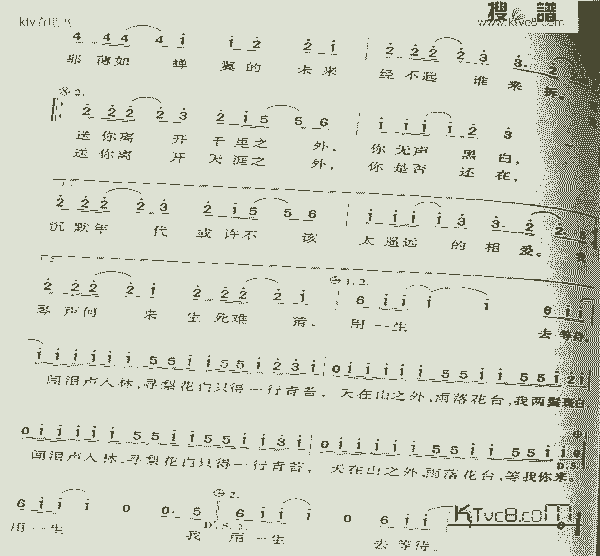 搜 谱
www.ktvc8.com
4 4 4 4 i i 2 2 i 2 2 2 2 3 3. 2
那 薄如 蝉 翼的 未来 经不起 谁来 拆。
𝄋2.
2 2 2 2 3 2 i 5 5 6 i i i i 2 3
送你离 开 千里之 外, 你无声 黑白,
送你离 开 天涯之 外, 你是否 还在,
2 2 2 2 3 2 i 5 5 6 i i i i 3 3. 2 2
沉默年 代 或许不 该 太遥远 的 相 爱。
2 2 2 2 i 2 2 2 2 i 6 i i i i 6 i i
琴声何 来 生死难 猜, 用一生 去等待。
i i i i i i 5 5 i i 5 5 i 2 3 i 0 i i i i i i 5 5 i i 5 5 i 2 i
闻泪声入林,寻梨花白只得一行青苔, 天在山之外,雨落花台,我两鬓斑白
0 i i i i i 5 5 i i 5 5 i i 3 i 0 i i i i i i 5 5 i i 5 5 i i
闻泪声入林,寻梨花白只得一行青苔, 天在山之外,雨落花台,等我你来。
D.S.
6 i i i 0 0. 5 6 i i i 0 6 i i
D.S.2.
用一生 我 用一生 去等待。
KTvc8.com